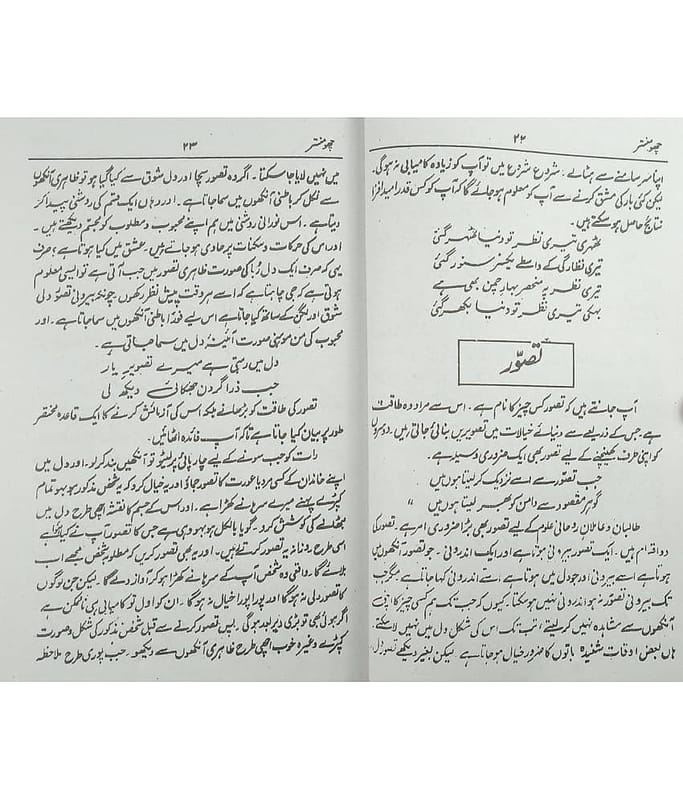 چھومنتر ۲۲
اپنا سر سامنے سے ہٹالے۔ شروع شروع میں تو آپ کو زیادہ کامیابی نہ ہوگی۔
لیکن کئی بار کی مشق کرنے سے آپ کو معلوم ہو جائے گا کہ آپ کو کس قدر امید افزا
نتائج حاصل ہو سکتے ہیں۔
ٹھہری تیری نظر تو دنیا ٹھہر گئی
تیری نظارگی کے واسطے یکسر سنور گئی
تیری نظر پہ منحصر بہار چمن بھی ہے
بہکی تیری نظر تو دنیا بکھر گئی
تصوّر
آپ جانتے ہیں کہ تصور کس چیز کا نام ہے۔ اس سے مراد وہ طاقت
ہے جس کے ذریعے سے دنیائے خیالات میں تصویریں بنائی جاتی ہیں۔ دوسروں
کو اپنی طرف کھینچنے کے لیے تصور بھی ایک ضروری وسیلہ ہے۔
جب تصوّر سے اسے نزدیک کر لیتا ہوں میں
گوہر مقصود سے دامن کو بھر لیتا ہوں میں "
طالبان و عاملان روحانی علوم کے لیے تصور بھی بڑا ضروری امر ہے۔ تصور کی
دو اقسام ہیں۔ ایک تصور بیرونی ہوتا ہے اور ایک اندرونی۔ جو تصور آنکھوں میں
ہوتا ہے اسے بیرونی اور جو دل میں ہوتا ہے اسے اندرونی کہا جاتا ہے۔ مگر جب
تک بیرونی تصور نہ ہو اندرونی نہیں ہو سکتا۔ کیوں کہ جب تک ہم کسی چیز کا اپنی
آنکھوں سے مشاہدہ نہیں کر لیتے، تب تک اس کی شکل دل میں نہیں لا سکتے۔
ہاں بعض اوقات شنیدہ باتوں کا ضرور خیال ہو جاتا ہے لیکن بغیر دیکھے تصور دل
چھومنتر ۲۳
میں نہیں لایا جا سکتا۔ اگر وہ تصور سچا اور دلی شوق سے کیا گیا ہو تو ظاہری آنکھوں
سے نکل کر باطنی آنکھوں میں سما جاتا ہے۔ اور وہاں ایک قسم کی روشنی پیدا کر
دیتا ہے۔ اس نورانی روشنی میں ہم اپنے محبوب و مطلوب کو مجسم دیکھتے ہیں۔
اور اس کی حرکات و سکنات پر حاوی ہو جاتے ہیں۔ عشق میں کیا ہوتا ہے؟ صرف
یہی کہ صرف ایک دل رُبا کی صورت ظاہری تصور میں جب آتی ہے تو ایسی معلوم
ہوتی ہے کہ جی چاہتا ہے کہ اسے ہر وقت پیش نظر رکھوں۔ چونکہ بیرونی تصوّر دلی
شوق اور لگن کے ساتھ کیا جاتا ہے اس لیے فوراً باطنی آنکھوں میں سما جاتا ہے۔ اور
محبوب کی من موہنی صورت آئینہ دل میں سما جاتی ہے۔
دل میں رہتی ہے میرے تصویر یار
جب ذرا گردن جھکائی دیکھ لی
تصور کی طاقت کو بڑھانے بلکہ اس کی آزمائش کرنے کا ایک قاعدہ مختصر
طور پر بیان کیا جاتا ہے تاکہ آپ فائدہ اٹھائیں۔
رات کو جب سونے کے لیے چارپائی پر لیٹو تو آنکھیں بند کر لو۔ اور دل میں
اپنے خاندان کے کسی مرد یا عورت کا تصور جماؤ اور یہ خیال کرو کہ یہ شخص مذکور ہو بہو تمام
کپڑے پہنے میرے سرہانے کھڑا ہے۔ اور اس کے جسم کا نقشہ اچھی طرح دل میں
بٹھانے کی کوشش کرو۔ گویا بالکل ہو بہو وہی ہے جس کا تصور آپ نے کیا ہوا ہے
اسی طرح روزانہ یہ تصور کرتے رہیں۔ اور یہ بھی تصور کریں کہ مطلوبہ شخص مجھے اب
بلائے گا۔ واقعی وہ شخص آپ کے سرہانے کھڑا ہو کر آواز دے گا۔ لیکن جن لوگوں
کا تصور دلی نہ ہو گا اور پورا پورا خیال نہ ہو گا۔ ان کو اول تو کامیابی ہی ناممکن ہے
اگر ہوئی بھی تو بڑی دیر بعد ہو گی۔ بس تصور کرنے سے قبل شخص مذکور کی شکل و صورت
کپڑے وغیرہ خوب اچھی طرح ظاہری آنکھوں سے دیکھو۔ جب پوری طرح ملاحظہ